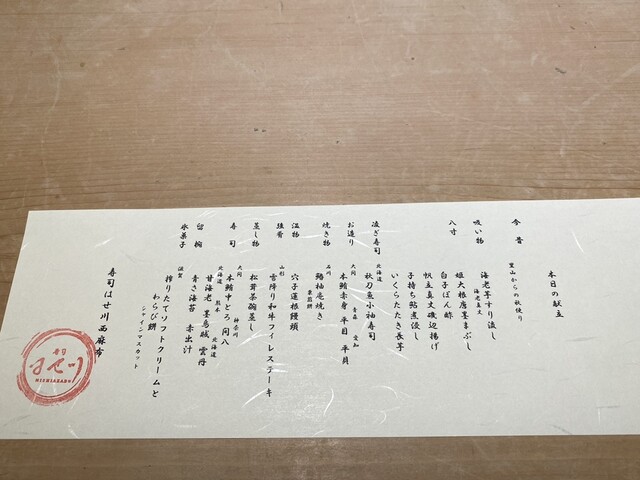 本日の献立
今昔
里山からの秋便り
吸い物
海老芋すり流し
海老真丈
八寸
姫大根唐墨まぶし
白子ぽん酢
帆立真丈磯辺揚げ
子持ち鮎煮浸し
いくらたたき長芋
凌ぎ寿司
北海道
秋刀魚小袖寿司
お造り
大間 青森 愛知
本鮪赤身 平目 平貝
焼き物
品川
鰆柚庵焼き
温物
穴子蓮根饅頭
強肴
山形
雪降り和牛フィレステーキ
蒸し物
松茸茶碗蒸し
寿司
大間 神奈川
本鮪中とろ 間八
北海道 熊本 北海道
甘海老 墨烏賊 雲丹
留椀
青さ海苔 赤出汁
氷菓子
滋賀
搾りたてソフトクリームと
わらび餅
シャインマスカット
寿司はせ川西麻布
NISHIAZABU